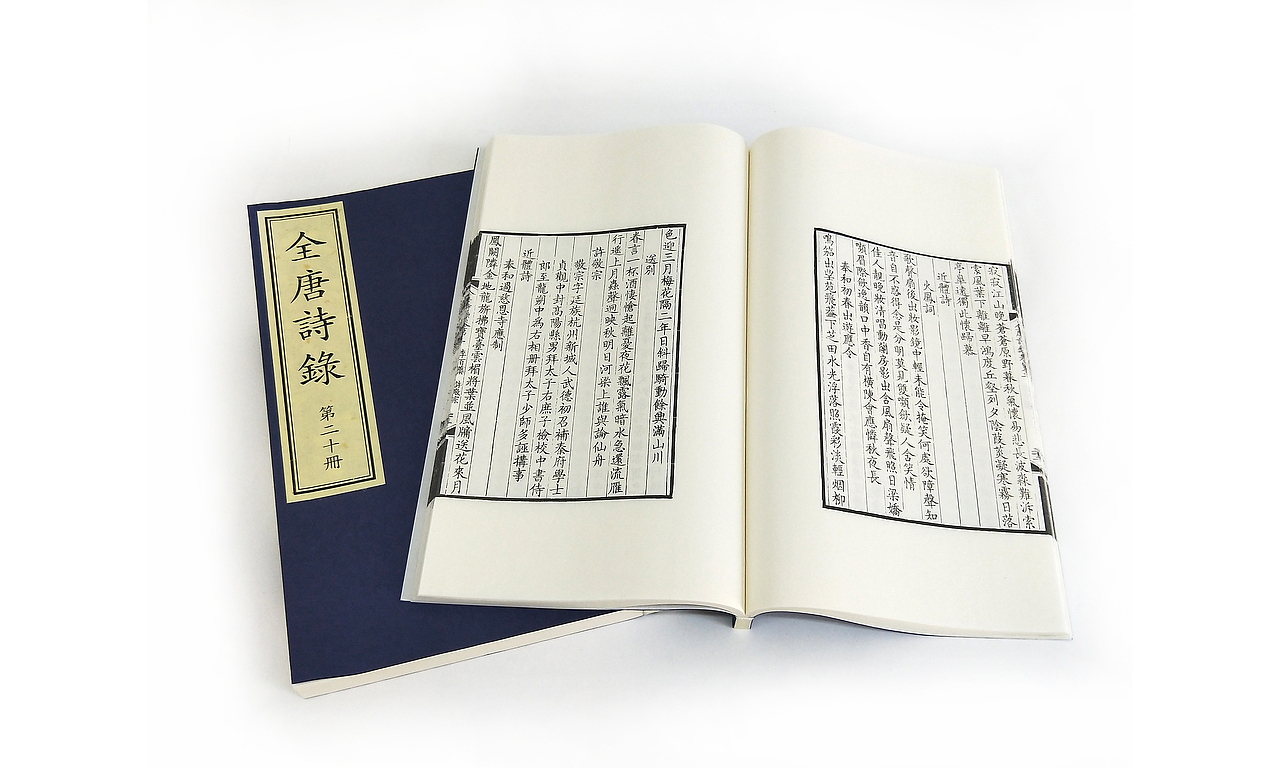 全唐詩錄
第二十冊
寂寂江山晚蒼蒼原野暮秋氣懷易悲長波淼難泝索
索風葉下離離早鴻度丘壑列夕陰葭菼凝寒霧日落
亭皐遠獨此懷歸慕
近體詩
火鳳詞
歌聲扇後出妝影鏡中輕未能令掩笑何處欲障聲知
音自不惑得念是分明莫見雙嚬斂疑人含笑情
佳人靚晚妝清唱動蘭房影出含風扇聲飛照日梁嬌
嚬眉際斂逸韻口中香自有橫陳會應憐秋夜長
奉和初春出遊應令
鳴笳出望苑飛蓋下芝田水光浮落照雲彩淡輕烟柳
色迎三月梅花隔二年日斜歸騎動餘興滿山川
送别
眷言一杯酒悽愴起離憂夜花飄露氣暗水急還流雁
行遙上月蟲聲迥映秋明日河梁上誰與論仙舟
許敬宗
敬宗字延族杭州新城人武德初召補秦府學士
貞觀中封高陽縣男拜太子右庶子檢校中書侍
郎至龍朔中為右相册拜太子少師多誣構事
近體詩
奉和過慈恩寺應制
鳳闕鄰金地龍旂拂寶臺雲楣將葉並風牖送花來月